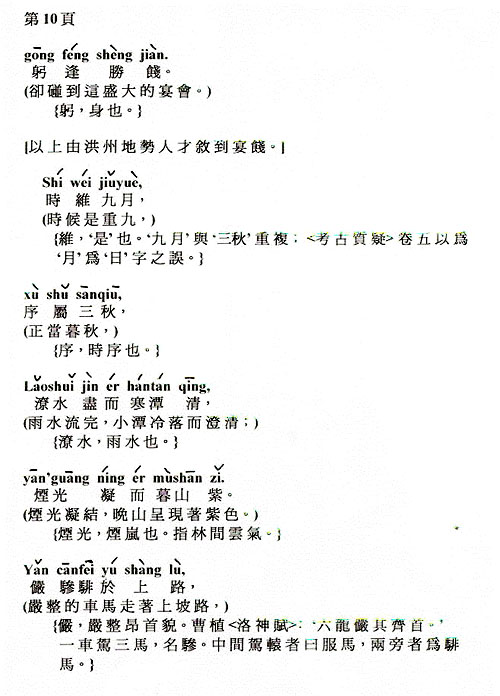 第10頁
gōng féng shèng jiàn.
躬逢勝餞。
(卻碰到這盛大的宴會。)
{躬，身也。}
[以上由洪州地勢人才敘到宴餞。]
Shí wéi jiǔyuè,
時維九月，
(時候是重九，)
{維，‘是’也。‘九月’與‘三秋’重複；<考古質疑>卷五以爲
‘月’爲‘日’字之誤。}
xù shǔ sānqiū,
序屬三秋，
(正當暮秋，)
{序，時序也。}
Lǎoshuǐ jìn ér hántán qīng,
潦水盡而寒潭清，
(雨水流完，小潭冷落而澄清；)
{潦水，雨水也。}
yān'guāng níng ér mùshān zǐ.
煙光凝而暮山紫。
(煙光凝結，晚山呈現著紫色。)
{煙光，煙嵐也。指林間雲氣。}
Yǎn cānfēi yú shàng lù,
儼驂騑於上路，
(嚴整的車馬走著上坡路，)
{儼，嚴整昂首貌。曹植<洛神賦>：‘六龍儼其齊首。’
一車駕三馬，名驂。中間駕轅者曰服馬，兩旁者爲騑
馬。}